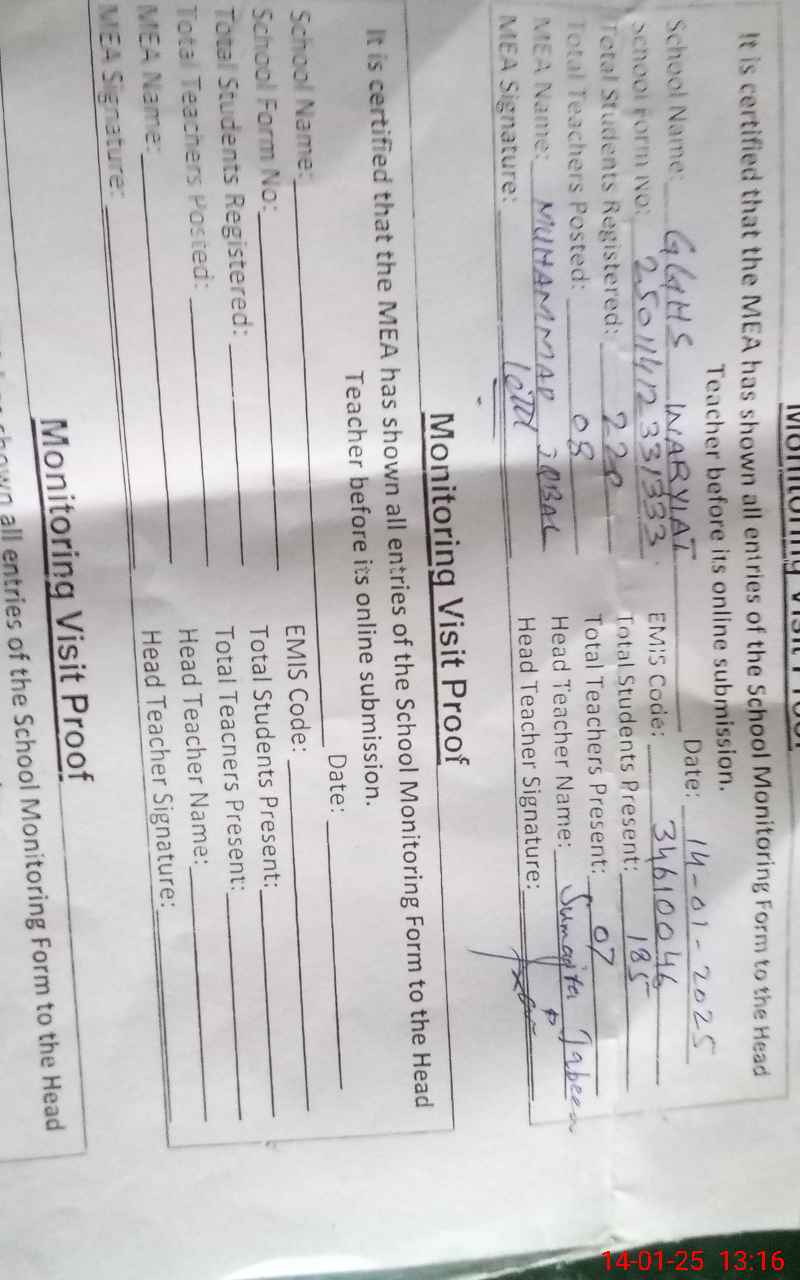 Monitoring Visit Proof
It is certified that the MEA has shown all entries of the School Monitoring Form to the Head
Teacher before its online submission.
School Name: GGHS INARYIAT Date: 14-01-2025
School Form No: 25011412331333 EMIS Code: 34610046
Total Students Registered: 220 Total Students Present: 185
Total Teachers Posted: 08 Total Teachers Present: 07
MEA Name: MUHAMMAD IQBAL Head Teacher Name: Jabeen
MEA Signature: Head Teacher Signature:
Monitoring Visit Proof
It is certified that the MEA has shown all entries of the School Monitoring Form to the Head
Teacher before its online submission.
School Name: Date:
School Form No: EMIS Code:
Total Students Registered: Total Students Present:
Total Teachers Posted: Total Teachers Present:
MEA Name: Head Teacher Name:
MEA Signature: Head Teacher Signature:
Monitoring Visit Proof
shown all entries of the School Monitoring Form to the Head
14-01-25 13:16